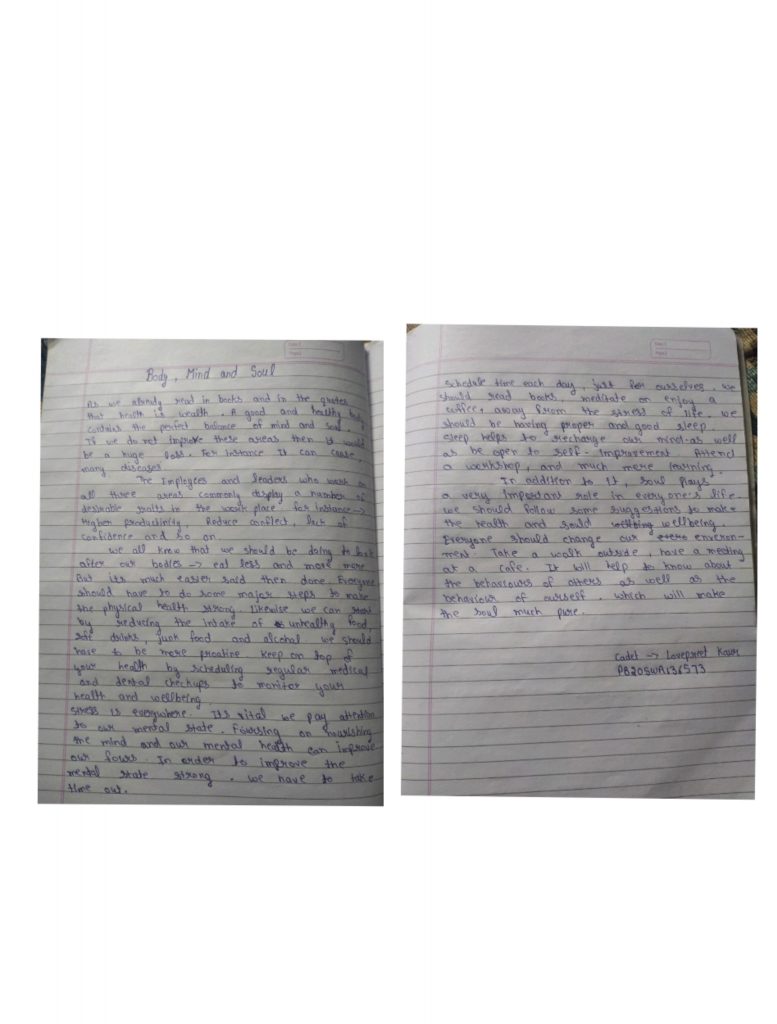 Body, Mind and Soul
As we already read in books and in the quotes
that health is wealth. A good and healthy body
contains the perfect balance of mind and soul.
If we do not improve these areas then it would
be a huge loss. For instance It can cause,
many diseases.
The Employees and leaders who work on
all three areas commonly display a number of
desirable traits in the work place. for instance →
Higher productivity, Reduce conflict, lack of
confidence and so on.
we all know that we should be doing to look
after our bodies → eat less and move more.
But its much easier said then done. Everyone
should have to do some major steps to make
the physical health strong. likewise we can start
by reducing the intake of unhealthy food,
soft drinks, junk food and alcohol we should
have to be more proative keep on top of
your health by scheduling regular medical
and dental checkups to monitor your
health and wellbeing.
stress is everywhere. Its vital we pay attention
to our mental state. Foursing on nourishing
the mind and our mental health can improve
our fours. In order to improve the
mental state strong. we have to take
time out.
Schedule time each day, just for ourselves. we
should read books, meditate or enjoy a
coffee, away from the stress of life. we
should be having proper and good sleep.
sleep helps to recharge our mind as well
as be open to self-improvement Attend
a workshop, and much more learning.
In addition to it, soul plays
a very important role in everyone's life.
we should follow some suggestions to make
the health and sould wellbeing.
Everyone should change our environ-
ment Take a walk outside, have a meeting
at a cafe. It will help to know about
the behaviours of others as well as the
behaviour of ourself. which will make
the soul much pure.
Cadet → Lovepreet Kaur
PB20SWA136573